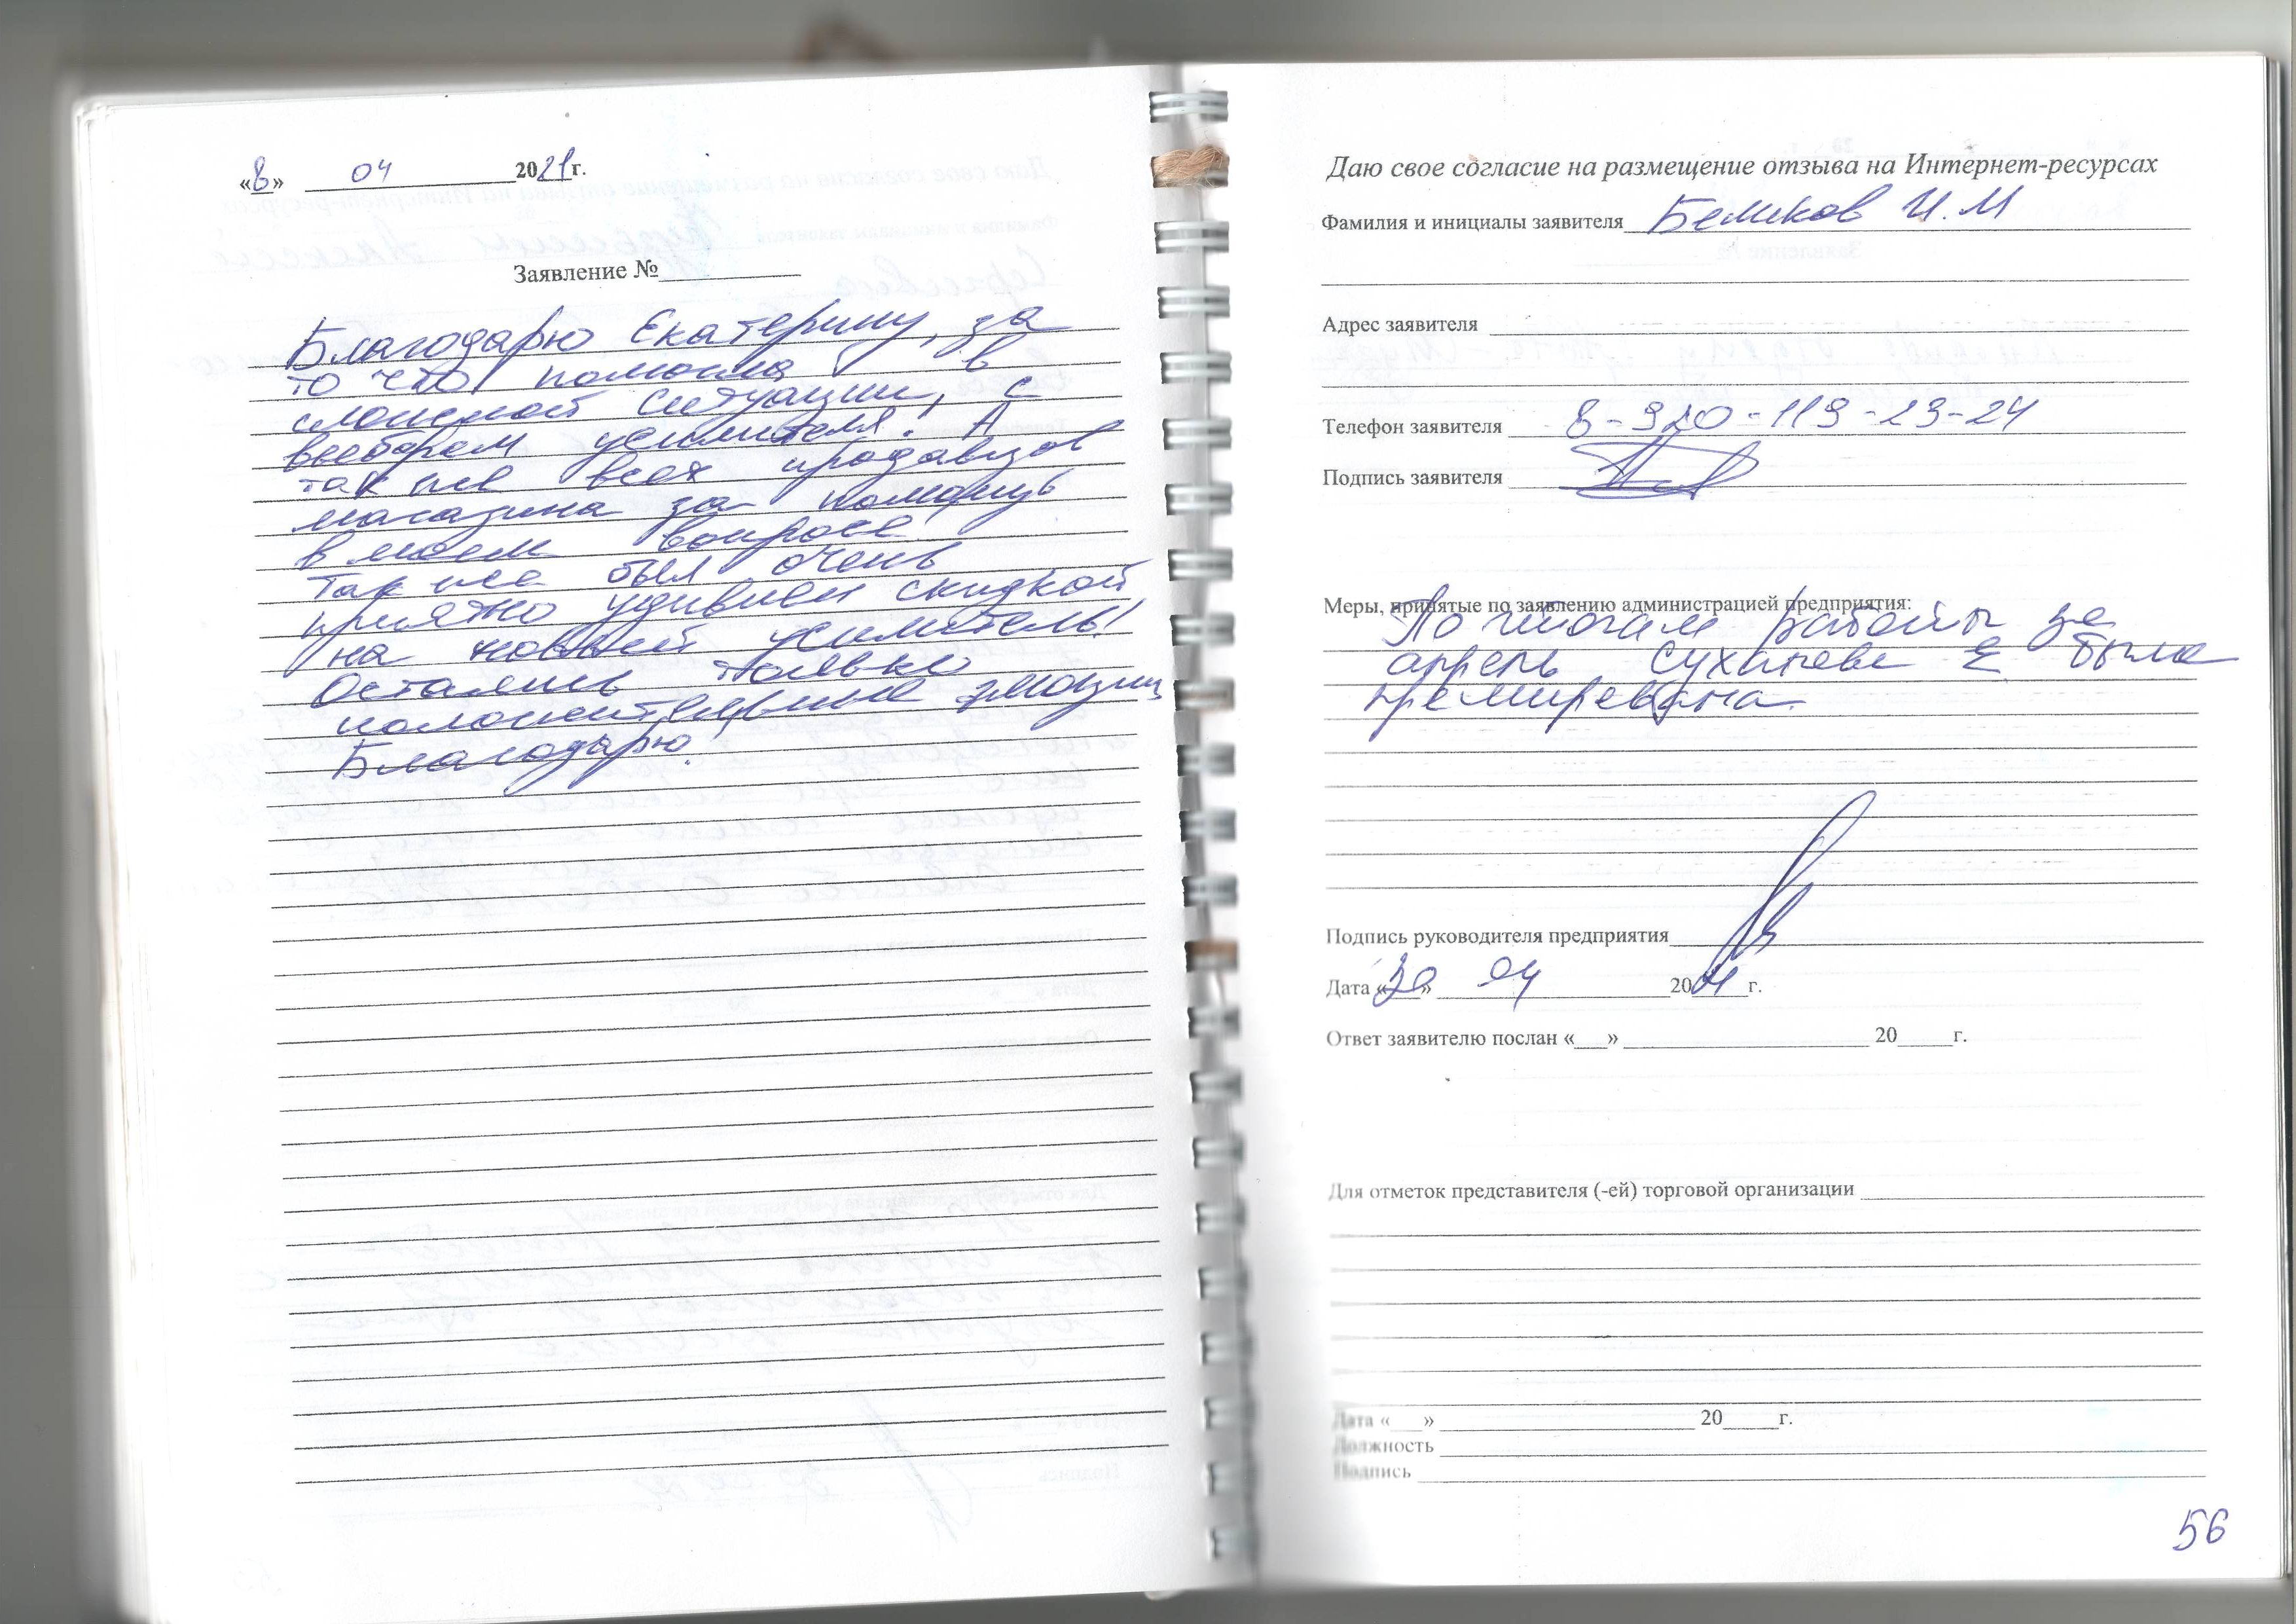 «8» 04 2021г.
Заявление №
Благодарю Екатерину, за
то что помогла в
сложной ситуации, с
выбором усилителя! А
так же всех продавцов
магазина за помощь
в моем вопросе.
Так же был очень
приятно удивлен скидкой
на новый усилитель!
Остались только
положительные эмоции
Благодарю!
Даю свое согласие на размещение отзыва на Интернет-ресурсах
Фамилия и инициалы заявителя Беликов И.М
Адрес заявителя
Телефон заявителя 8-920-119-23-24
Подпись заявителя
Меры, принятые по заявлению администрацией предприятия:
По итогам работы за
апрель Сухинева Е была
премирована.
Подпись руководителя предприятия
Дата «30» 04 2021г.
Ответ заявителю послан «___» 20____г.
Для отметок представителя (-ей) торговой организации
Дата «___» 20____г.
Должность
Подпись
56